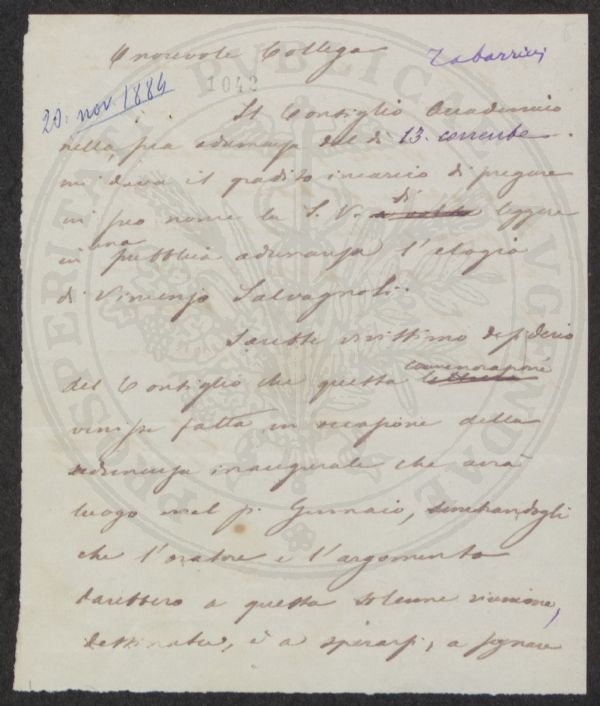 Onorevole Collega
Tabarrini
20. nov. 1884
1042
Il Consiglio Accademico
nella sua adunanza del dì 13. corrente
mi dava il gradito incarico di pregare
in suo nome la S. V. a voler di leggere
in una pubblica adunanza l'elogio
di Vincenzo Salvagnoli.
Sarebbe vivissimo desiderio
del Consiglio che questa commemorazione
venisse fatta in occasione della
adunanza inaugurale che avrà
luogo nel p. Gennaio, sembrandogli
che l'oratore e l'argomento
sarebbero a questa solenne riunione,
destinata, è a sperarsi, a segnare
PROSPERITATI PUBLICAE AUGENDAE